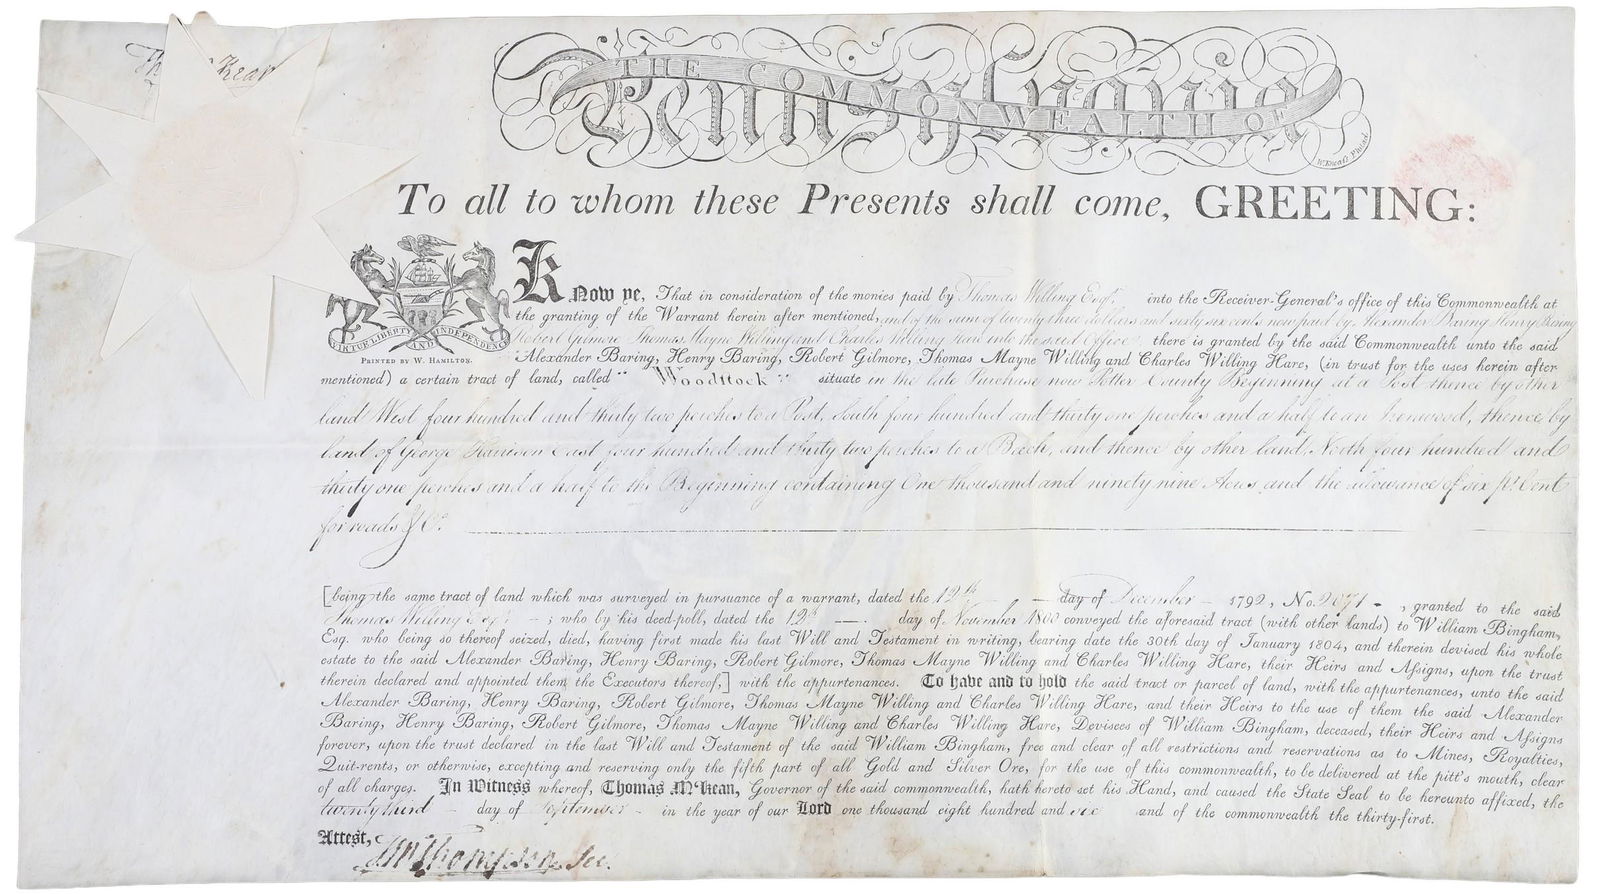 Th Kean
THE COMMONWEALTH OF
Pennsylvania
W. Kneass Philad.
To all to whom these Presents shall come, GREETING:
VIRTUE LIBERTY AND INDEPENDENCE
PRINTED BY W. HAMILTON.
Know ye, That in consideration of the monies paid by Thomas Willing Esqr. into the Receiver-General's office of this Commonwealth at
the granting of the Warrant herein after mentioned, and of the sum of twenty three dollars and sixty six cents now paid by Alexander Baring Henry Baring
Robert Gilmore Thomas Mayne Willing and Charles Willing Hare into the said Office there is granted by the said Commonwealth unto the said
Alexander Baring, Henry Baring, Robert Gilmore, Thomas Mayne Willing and Charles Willing Hare, (in trust for the uses herein after
mentioned) a certain tract of land, called "Woodstock" situate in the late Purchase now Potter County Beginning at a Post thence by other
land West four hundred and thirty two perches to a Post, South four hundred and thirty one perches and a half to an Ironwood, thence by
land of George Harrison East four hundred and thirty two perches to a Beech, and thence by other land North four hundred and
thirty one perches and a half to the Beginning containing One thousand and ninety nine Acres and the allowance of six pr. Cent
for roads &Ca.
[being the same tract of land which was surveyed in pursuance of a warrant, dated the 12th day of December 1792, No. 2071, granted to the said
Thomas Willing Esqr. ; who by his deed-poll, dated the 12th day of November 1800 conveyed the aforesaid tract (with other lands) to William Bingham,
Esq. who being so thereof seized, died, having first made his last Will and Testament in writing, bearing date the 30th day of January 1804, and therein devised his whole
estate to the said Alexander Baring, Henry Baring, Robert Gilmore, Thomas Mayne Willing and Charles Willing Hare, their Heirs and Assigns, upon the trust
therein declared and appointed them the Executors thereof,] with the appurtenances. To have and to hold the said tract or parcel of land, with the appurtenances, unto the said
Alexander Baring, Henry Baring, Robert Gilmore, Thomas Mayne Willing and Charles Willing Hare, and their Heirs to the use of them the said Alexander
Baring, Henry Baring, Robert Gilmore, Thomas Mayne Willing and Charles Willing Hare, Devisees of William Bingham, deceased, their Heirs and Assigns
forever, upon the trust declared in the last Will and Testament of the said William Bingham, free and clear of all restrictions and reservations as to Mines, Royalties,
Quit-rents, or otherwise, excepting and reserving only the fifth part of all Gold and Silver Ore, for the use of this commonwealth, to be delivered at the pitt's mouth, clear
of all charges. In Witness whereof, Thomas M'Kean, Governor of the said commonwealth, hath hereto set his Hand, and caused the State Seal to be hereunto affixed, the
twenty third day of September in the year of our Lord one thousand eight hundred and six and of the commonwealth the thirty-first.
Attest,
Thompson Sec.